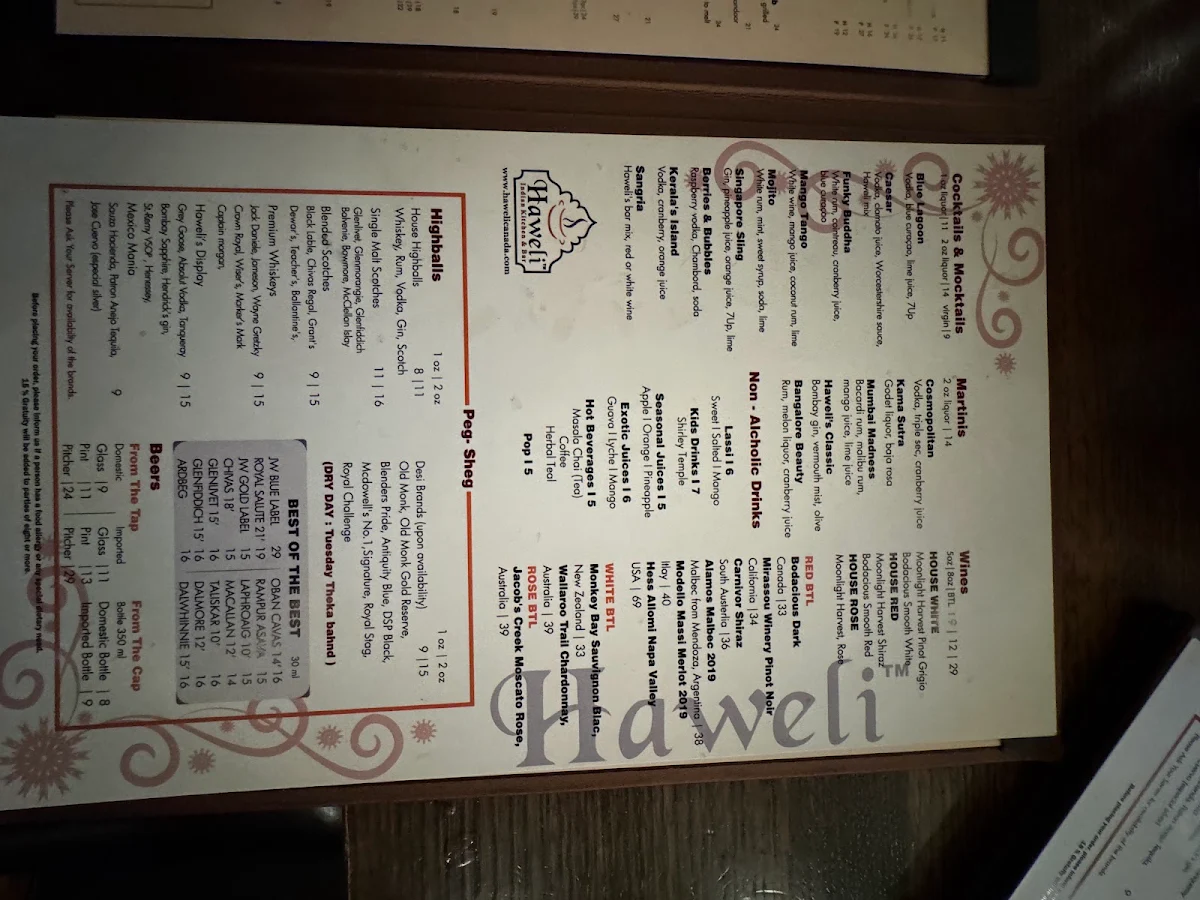 Cocktails & Mocktails
1 oz liquor|11 2 oz liquor|14 virgin|9
Blue Lagoon
Vodka, blue curaçao, lime juice, 7Up
Caesar
Vodka, clamato juice, Worcestershire sauce,
Haweli mix
Funky Buddha
White rum, cointreau, cranberry juice,
blue curaçao
Mango Tango
White wine, mango juice, coconut rum, lime
Mojito
White rum, mint, sweet syrup, soda, lime
Singapore Sling
Gin, pineapple juice, orange juice, 7Up, lime
Berries & Bubbles
Raspberry vodka, Chambord, soda
Kerala's Island
Vodka, cranberry, orange juice
Sangria
Haweli's bar mix, red or white wine
Haweli
Indian Kitchen & Bar
www.hawelicanada.com
Martinis
2 oz liquor | 14
Cosmopolitan
Vodka, triple sec, cranberry juice
Kama Sutra
Godet liquor, baja rosa
Mumbai Madness
Bacardi rum, malibu rum,
mango juice, lime juice
Haweli's Classic
Bombay gin, vermouth mist, olive
Bangalore Beauty
Rum, melon liquor, cranberry juice
Non - Alcholic Drinks
Lassi | 6
Sweet | Salted | Mango
Kids Drinks | 7
Shirley Temple
Seasonal Juices | 5
Apple | Orange | Pineapple
Exotic Juices | 6
Guava | Lyche | Mango
Hot Beverages | 5
Masala Chai (Tea)
Coffee
Herbal Teal
Pop | 5
Wines
5oz|8oz|BTL | 9 | 12 | 29
HOUSE WHITE
Moonlight Harvest Pinot Grigio
Bodacious Smooth White
HOUSE RED
Moonlight Harvest Shiraz
Bodacious Smooth Red
HOUSE ROSE
Moonlight Harvest, Rose
RED BTL
Bodacious Dark
Canada |33
Mirassou Winery Pinot Noir
California |34
Carnivor Shiraz
South Austerlia |36
Alamos Malbec 2019
Malbec from Mendoza, Argentina | 38
Modello Massi Merlot 2019
Itlay | 40
Hess Allomi Napa Valley
USA | 69
WHITE BTL
Monkey Bay Sauvignon Blac,
New Zealand | 33
Wallaroo Trail Chardonnay,
Australia | 39
ROSE BTL
Jacob's Creek Moscato Rose,
Australia | 39
Haweli™
Peg- Sheg
Highballs 1 oz | 2 oz
House Highballs 8 |11
Whiskey, Rum, Vodka, Gin, Scotch
Single Malt Scotches 11 | 16
Glenlivet, Glenmorangie, Glenfiddich
Balvenie, Bowmore, McClellan Islay
Blended Scotches
Black Lable, Chivas Regal, Grant's 9 | 15
Dewar's, Teacher's, Ballantine's,
Premium Whiskeys
Jack Daniels, Jameson, Wayne Gretzky 9 | 15
Crown Royal, Wiser's, Marker's Mark
Captain morgan,
Haweli's Display
Grey Goose, Absolut Vodka, Tanqueray 9 | 15
Bombay Sapphire, Hendrick's gin,
St-Remy VSOP, Hennesey,
Mexico Mania
Sauza Hacienda, Patron Anejo Tequila, 9
Jose Cuervo (especial silver)
Please Ask Your Server for availabilty of the brands.
1 oz | 2 oz
Desi Brands (upon availability) 9 |15
Old Monk, Old Monk Gold Reserve,
Blenders Pride, Antiquity Blue, DSP Black,
Mcdowell's No.1,Signature, Royal Stag,
Royal Challenge
(DRY DAY : Tuesday Theka bahnd )
BEST OF THE BEST 30 ml
JW BLUE LABEL 29 OBAN CAVAS 14' 16
ROYAL SALUTE 21' 19 RAMPUR ASAVA 15
JW GOLD LABEL 15 LAPHROAIG 10' 15
CHVAS 18' 15 MACALLAN 12' 14
GLENLIVET 15' 16 TALISKAR 10' 16
GLENFIDDICH 15' 16 DALMORE 12' 16
ARDBEG 16 DALWHINNIE 15' 16
Beers
From The Tap
Domestic Imported
Glass |9 Glass |11
Pint |11 Pint |13
Pitcher |24 Pitcher |29
From The Cap
Bottle 350 ml
Domestic Bottle | 8
Imported Bottle | 9
Before placing your order, please inform us if a person has a food allergy or any special dietary need.
18 % Gratuity will be added to parties of eight or more.